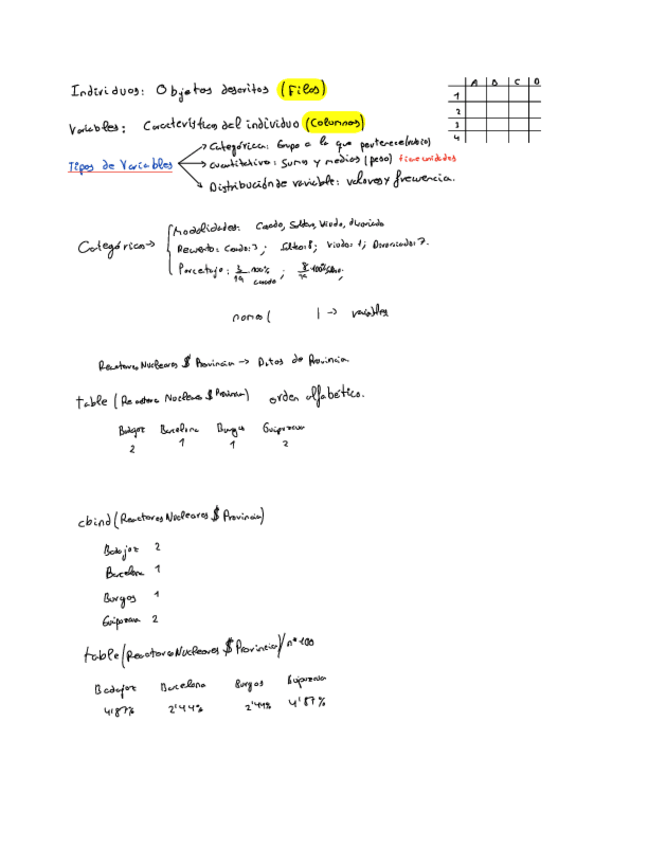 Individuos: Objetos descritos (Filas)
A B C D
1
2
3
4
Variables: Característica del individuo (Columnas)
Categórica: Grupo a la que pertenece (rubio)
Tipos de Variables
cuantitativa: Suma y medias (peso) tiene unidades
Distribución de variable: valores y frecuencia.
Modalidades: Casado, Soltero, Viudo, divorciado
Categórica→
Recuento: Casado: 3; Soltero: 8; Viudo: 1; Divorciado: 7.
Porcetaje: 3/19 100% casado; 100%
→ variables
ReactoresNucleares $ Provincia → Datos de Provincia
table (Reactores Nucleares $ Provincia) orden alfabético.
Badajoz Barcelona Burgos Guipuzcoa
2 1 1 2
cbind (ReactoresNucleares $ Provincia)
Badajoz 2
Barcelona 1
Burgos 1
Guipuzcoa 2
table (ReactoresNucleares $ Provincia)/n*100
Badajoz Barcelona Burgos Guipuzcoa
4'87% 2'44% 2'44% 4'87%